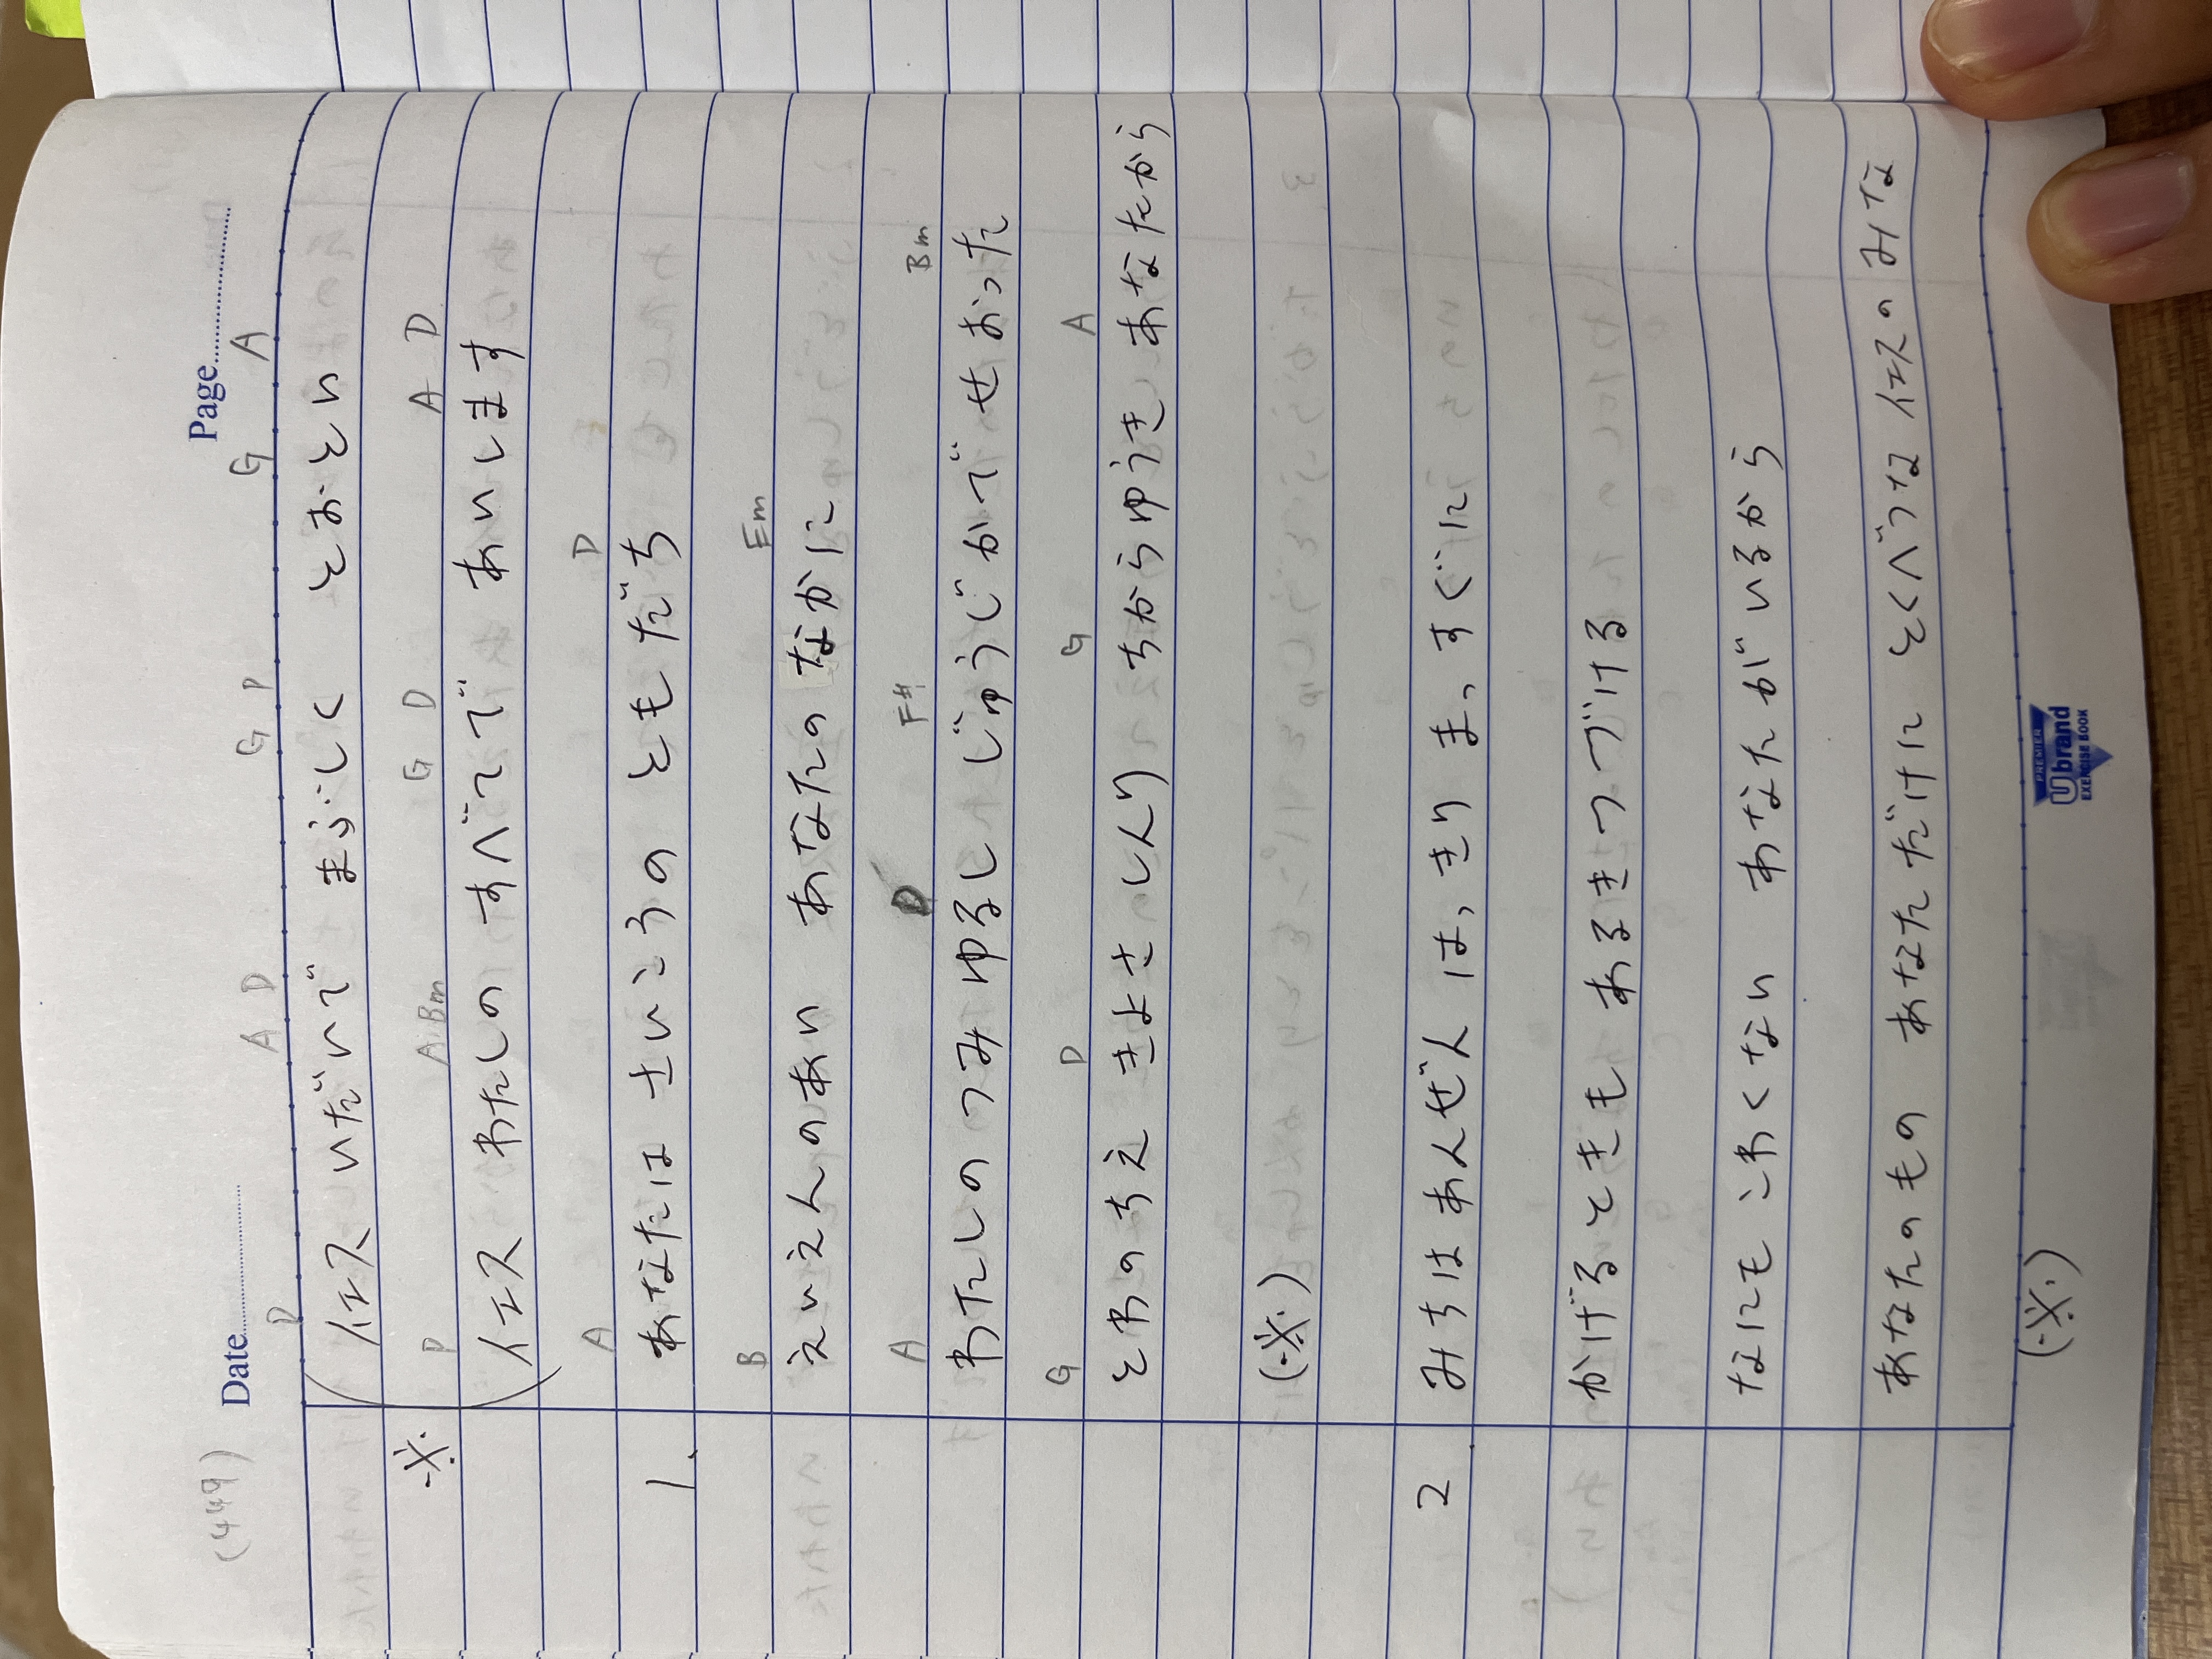 (449) Date Page
D A D G D G A
イエス いだいで まぶしく とおとい
※ D A Bm G D A D
イエス わたしの すべてで あいします
A D
1. あなたは さいこうの ともだち
B Em
えいえんのあい あなたの なかに
A D F# Bm
わたしの つみ ゆるし じゅうじかで せおった
G D G A
とわのちえ きよさ しんり ちからゆうき あなたから
(※)
2 みちは あんぜん はっきり まっすぐに
かげるときも あるきつづける
なにも こわくない あなたが いるから
あなたのもの あなただけに とくべつな イエスの みな
(※)
PREMIER
Ubrand
EXERCISE BOOK